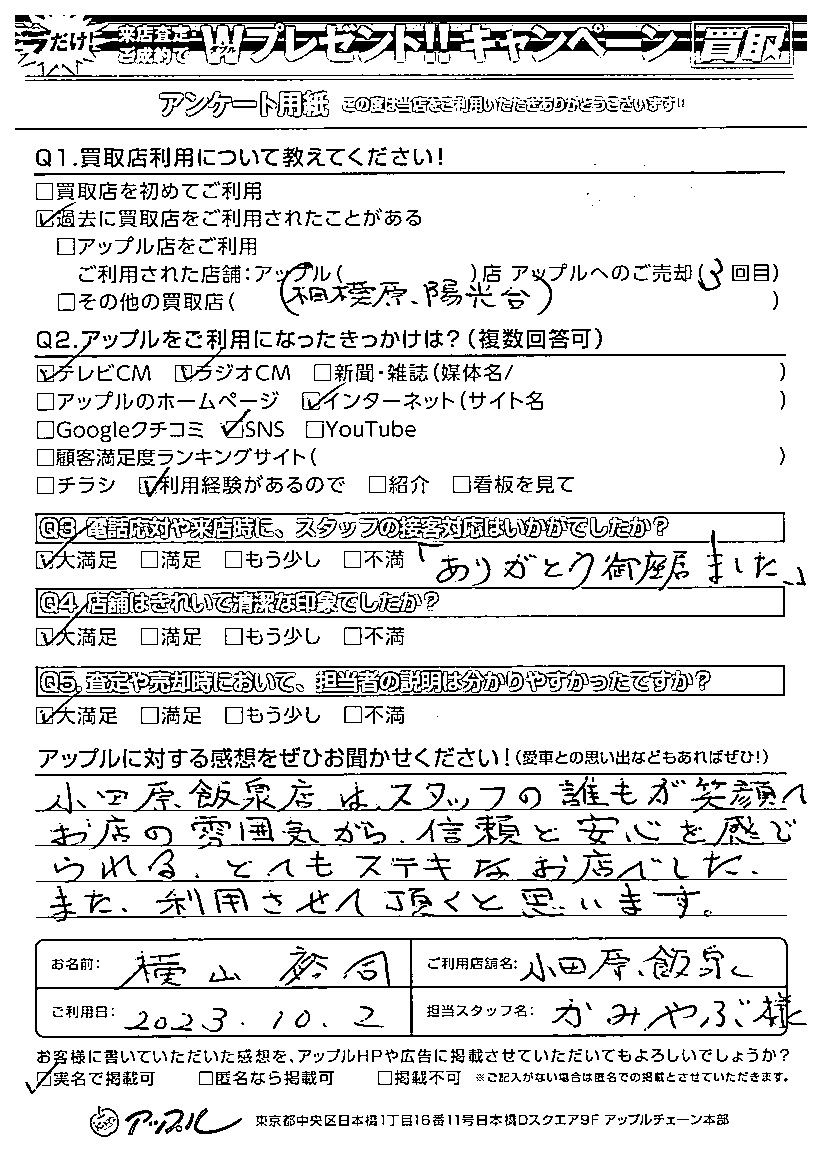 今だけ! 来店査定・ご成約で Wダブルプレゼント!! キャンペーン 買取
アンケート用紙 この度は当店をご利用いただきありがとうございます!!
Q1.買取店利用について教えてください!
□買取店を初めてご利用
☑過去に買取店をご利用されたことがある
□アップル店をご利用
ご利用された店舗:アップル( )店 アップルへのご売却(3回目)
□その他の買取店( (相模原、陽光台) )
Q2.アップルをご利用になったきっかけは?(複数回答可)
☑テレビCM ☑ラジオCM □新聞・雑誌(媒体名/ )
□アップルのホームページ ☑インターネット(サイト名 )
□Googleクチコミ ☑SNS □YouTube
□顧客満足度ランキングサイト( )
□チラシ ☑利用経験があるので □紹介 □看板を見て
Q3.電話応対や来店時に、スタッフの接客対応はいかがでしたか?
☑大満足 □満足 □もう少し □不満 「ありがとう御座居ました、」
Q4.店舗はきれいで清潔な印象でしたか?
☑大満足 □満足 □もう少し □不満
Q5.査定や売却時において、担当者の説明は分かりやすかったですか?
☑大満足 □満足 □もう少し □不満
アップルに対する感想をぜひお聞かせください!(愛車との思い出などもあればぜひ!)
小田原飯泉店は、スタッフの誰もが笑顔で
お店の雰囲気がら、信頼と安心を感じ
られる、とてもステキなお店でした、
また、利用させて頂くと思います。
お名前: 横山 裕司 ご利用店舗名: 小田原、飯泉
ご利用日: 2023.10.2 担当スタッフ名: かみやぶ様
お客様に書いていただいた感想を、アップルHPや広告に掲載させていただいてもよろしいでしょうか?
☑実名で掲載可 □匿名なら掲載可 □掲載不可 ※ご記入がない場合は匿名での掲載とさせていただきます。
アップル 東京都中央区日本橋1丁目16番11号日本橋Dスクエア9F アップルチェーン本部